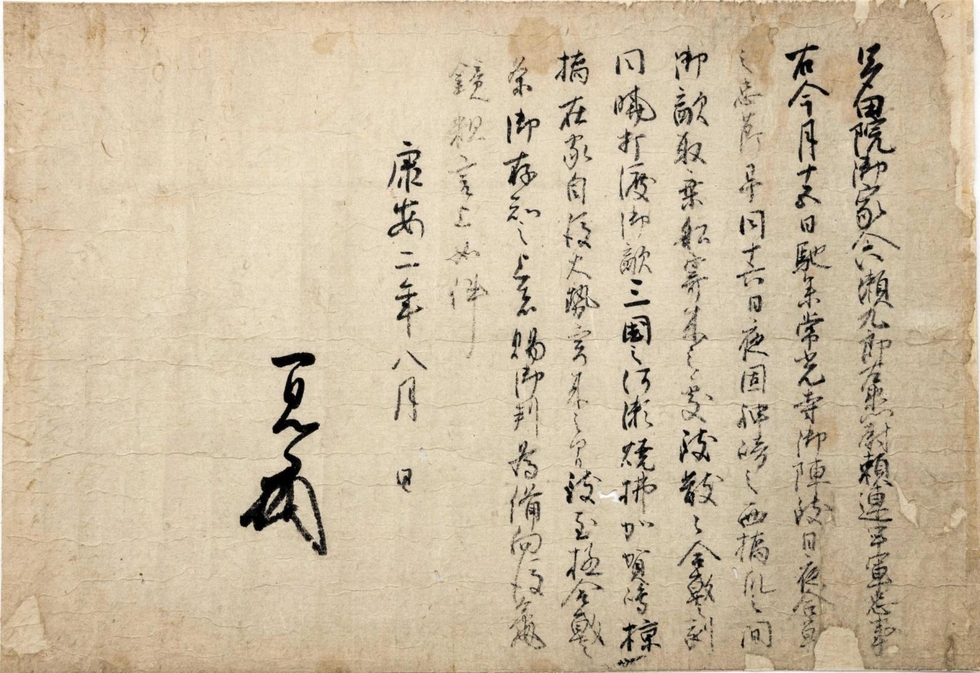 多田院御家人六瀬九郎右衛門尉頼連申軍忠事
右今月十五日馳参常光寺御陣致日夜合戦
之忠節畢同十六日夜固神崎之西橋爪之間
御敵取乗船寄来之処致散々合戦剰
同暁打渡御敵三国之河瀬焼拂加賀嶋椋
橋在家自後大勢寄来之間致至極合戦
条御存知之上者賜御判為備向後亀
鏡粗言上如件
康安二年八月 日
一見了